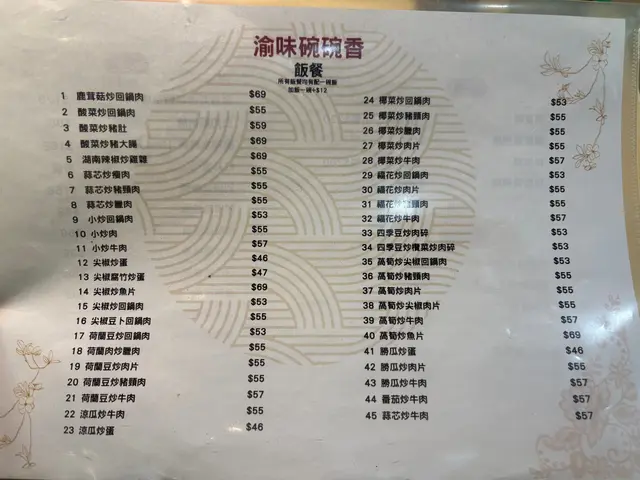 渝味碗碗香
飯餐
所有飯餐均有配一碗飯
加飯一碗+$12
1 鹿茸菇炒回鍋肉 $69
2 酸菜炒回鍋肉 $55
3 酸菜炒豬肚 $59
4 酸菜炒豬大腸 $69
5 湖南辣椒炒雞雜 $69
6 蒜芯炒瘦肉 $55
7 蒜芯炒豬頸肉 $55
8 蒜芯炒臘肉 $55
9 小炒回鍋肉 $53
10 小炒肉 $55
11 小炒牛肉 $57
12 尖椒炒蛋 $46
13 尖椒腐竹炒蛋 $47
14 尖椒炒魚片 $69
15 尖椒炒回鍋肉 $53
16 尖椒豆卜回鍋肉 $55
17 荷蘭豆炒回鍋肉 $53
18 荷蘭肉炒臘肉 $55
19 荷蘭豆炒肉片 $55
20 荷蘭豆炒豬頸肉 $55
21 荷蘭豆炒牛肉 $57
22 涼瓜炒牛肉 $55
23 涼瓜炒蛋 $46
24 椰菜炒回鍋肉 $53
25 椰菜炒豬頸肉 $55
26 椰菜炒臘肉 $55
27 椰菜炒肉片 $55
28 椰菜炒牛肉 $57
29 椰花炒回鍋肉 $53
30 椰花炒肉片 $55
31 椰花炒豬頸肉 $55
32 椰花炒牛肉 $57
33 四季豆炒肉碎 $53
34 四季豆炒欖菜炒肉碎 $53
35 萵筍炒尖椒回鍋肉 $53
36 萵筍炒豬頸肉 $55
37 萵筍炒肉片 $55
38 萵筍炒尖椒肉片 $55
39 萵筍炒牛肉 $57
40 萵筍炒魚片 $69
41 勝瓜炒蛋 $46
42 勝瓜炒肉片 $55
43 勝瓜炒牛肉 $57
44 番茄炒牛肉 $57
45 蒜芯炒牛肉 $57